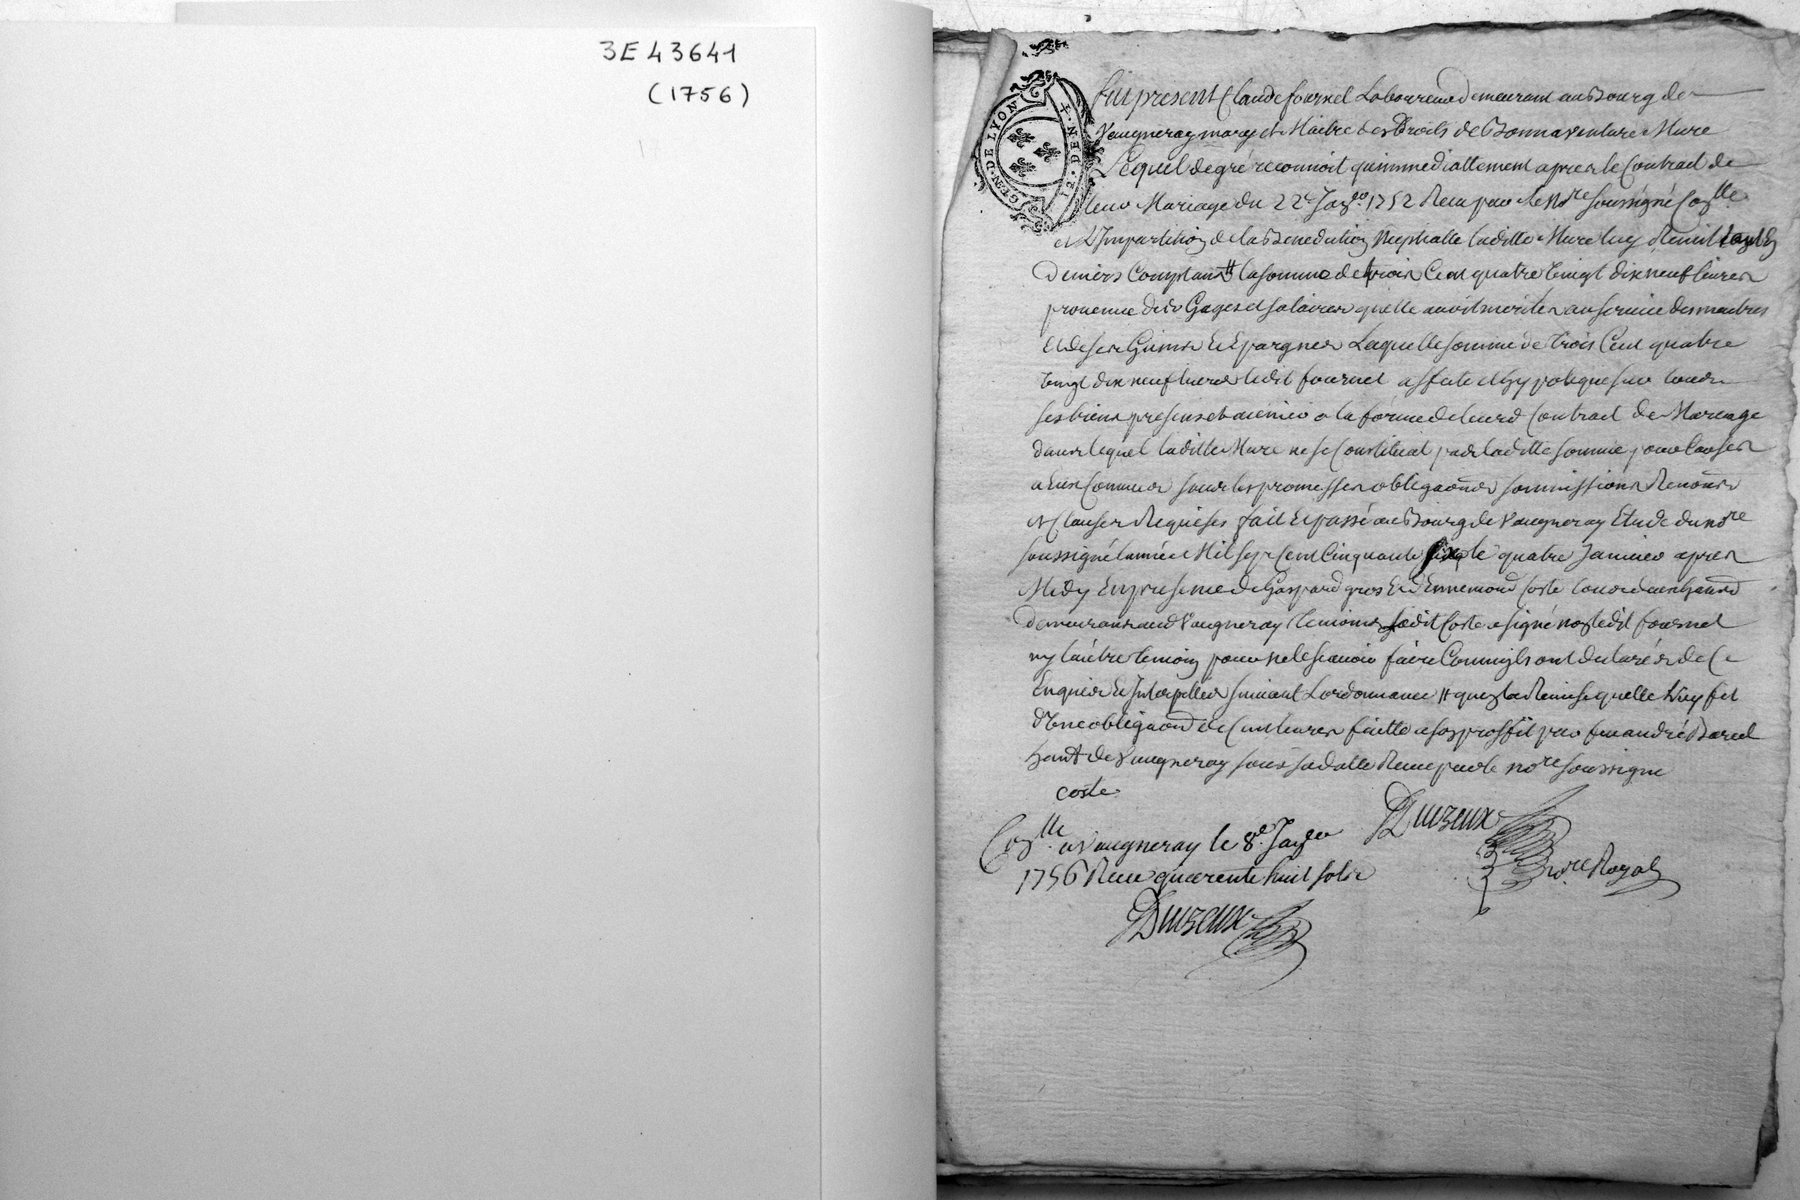 3E 43641
(1756)
GEN·DE LYON
12. DEN.
fut present Claude fournel Laboureur demeurant au Bourg de
Vaugneray mary et Maitre des droits de Bonnaventure Mure
Lequel de gré reconnoit quimmediattement apres le Contract de
leur Mariage du 22e Janer 1752 Receu par le Nore soussigné Conlle
et L'Impartition de la Benediction Nuptialle laditte Mure luy Remit
deniers Comptant # la somme de trois Cent quatre vingt dix neuf livres
provenue de ses Gages et salaires quelle avoit merités au service des maitres
et de ses Epargnes Laquelle somme de trois Cent quatre
vingt dix neuf livres ledit fournel affecte et hypoteque sur tous
ses biens presens et avenir a la forme de leurd Contract de Mariage
dans lequel laditte Mure ne se Constituat pas laditte somme pour Causes
a Eux Connues sous les promesses obligaons soumissions Renons
et Clauses Requises fait et passé au Bourg de Vaugneray Etude du Nore
soussigné Lannée Mil sept Cent Cinquante six le quatre Janvier apres
Midy En presence de Gaspard gros et d'Ennemond Coste tous deux
demeurans aud Vaugneray temoins ledit Coste a signé non ledit fournel
ny l'autre temoin pour ne le scavoir faire Comm'ils ont declarés de Ce
Enquis et Interpellés suivant Lordonnance # que la Remise quelle luy fit
d'Une obligaon de Cent livres faitte a son proffit par feu andré
habt de Vaugneray sous sa datte Receue par le nore soussigné
coste
Duizeux
nore Royal
Conlle a Vaugneray le 8e Janer
1756 Receu quarente huit sols
Duizeux